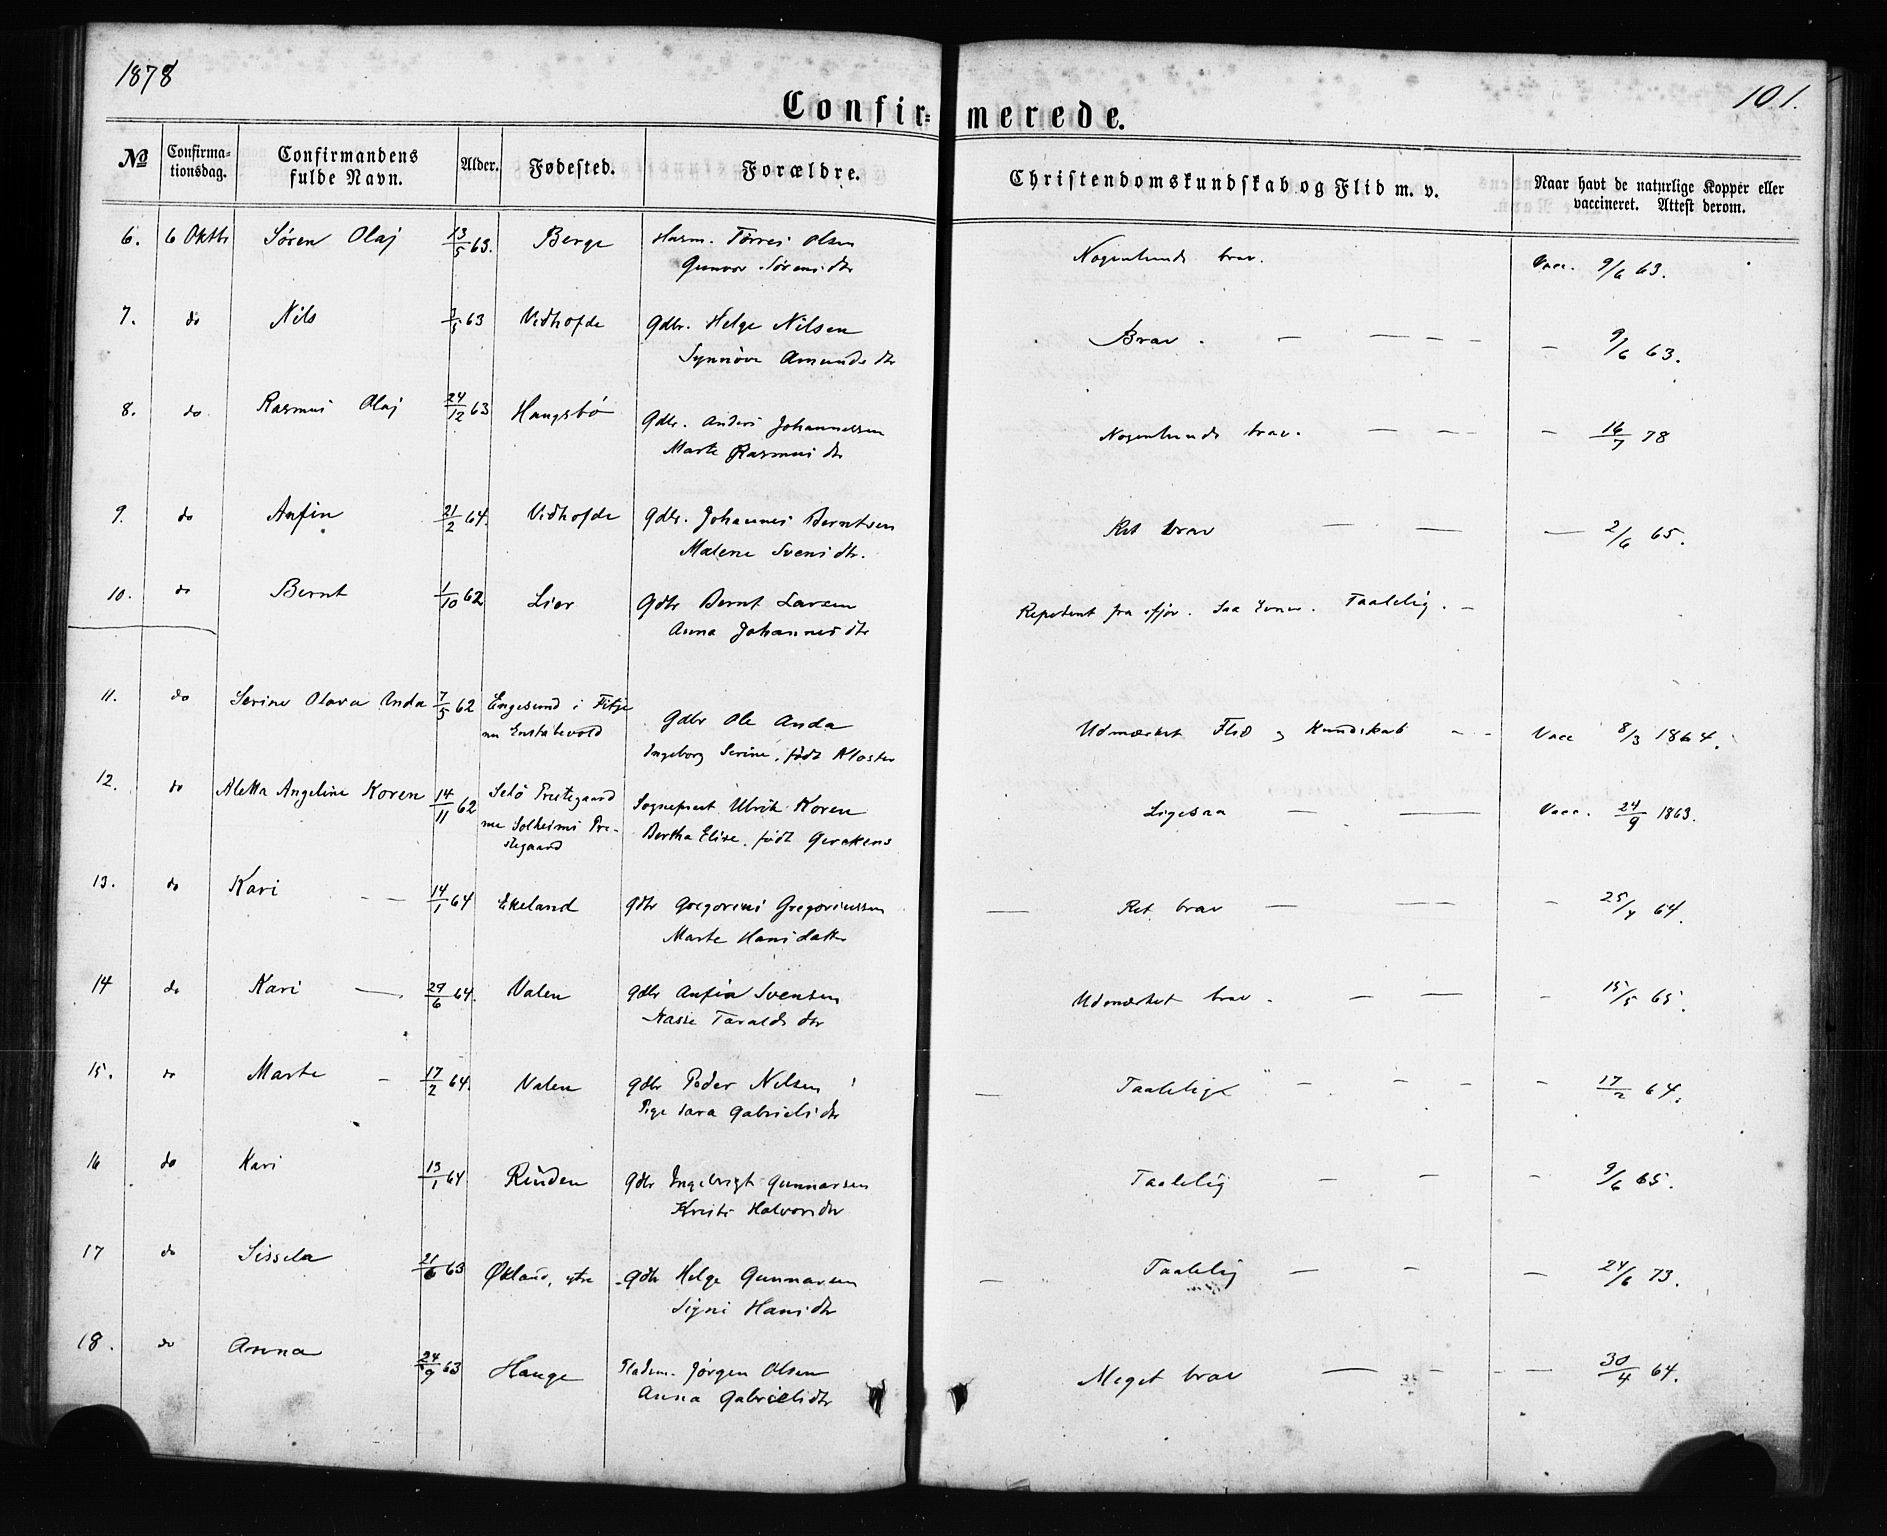 1878
101.
Confir= merede.
No Confirma-tionsdag. Confirmandens fulde Navn. Alder. Fødested. Forældre. Christendomskundskab og Flid m. v. Naar havt de naturlige Kopper eller vaccineret. Attest derom.
6. 6 Oktbr Søren Olaj 13/5 63. Berge Husm. Tørres Olsen Nogenlunde brav. Vacc. 9/6 63.
Gunvor Sørensdtr
7. do Nils 63 Vidhofde Gdbr. Helge Nilsen Brav. — — - - — 9/6 63.
Synnøve Amundsdtr
8. do Rasmus Olaj 24/12 63 Haugsbø Gdbr. Anders Johannessen Nogenlunde brav. — — - — 16/7 78
Marte Rasmusdtr
9. do Anfin 21/2 64. Vidhofde Gdbr. Johannes Berntsen Ret brav — — — 2/6 65.
Malene Svensdtr.
10. do Bernt 1/10 62 Lier Gdbr Bernt Larsen Repetent fra ifjor. Saa Evner. Taalelig. —
Anna Johannesdtr
11. do Serine Olava Anda 7/5 62 Engesund i Fitje Gdbr Ole Anda Udmærket Flid og Kundskab - - Vacc 8/3 1864.
nu Ingeborg Serine, født Kloster
12. do Aletta Angeline Koren 14/11 62 Selø Prestegaard Sogneprest Ulrik Koren Ligesaa — — Vacc. 24/9 1863.
nu Solheims Pre-stegaard Bertha Elise, født Gerckens
13. do Kari — - 14/1 64 Ekeland Gdbr Gregorius Gregoriussen — Ret brav — — - — 25/4 64.
Marte Hansdatter
14 do Kari —. 29/6 64. Valen Gdbr Anfin Svensen Udmærket brav. — — - 15/5 65.
Taraldsdtr
15. do Marte - 17/2 64. Valen Gdbr Peder Nilsen — Taalelig — - - - 17/2 64.
Pige Sara Gabrielsdtr
16 do Kari 13/1 64 Gdbr Ingebrigt Gunnarsen Taalelig — — - 9/6 65.
Kristi Halvorsdtr
17 do Sissela 21/6 63 Økland, ytre Gdbr Helge Gunnarsen — Taalelig — - — 24/6 73.
Signi Hansdtr
18. do Anna 24/9 63 Hauge Pladsm. Jørgen Olsen Meget brav — - - — 30/4 64.
Anna Gabrielsdtr